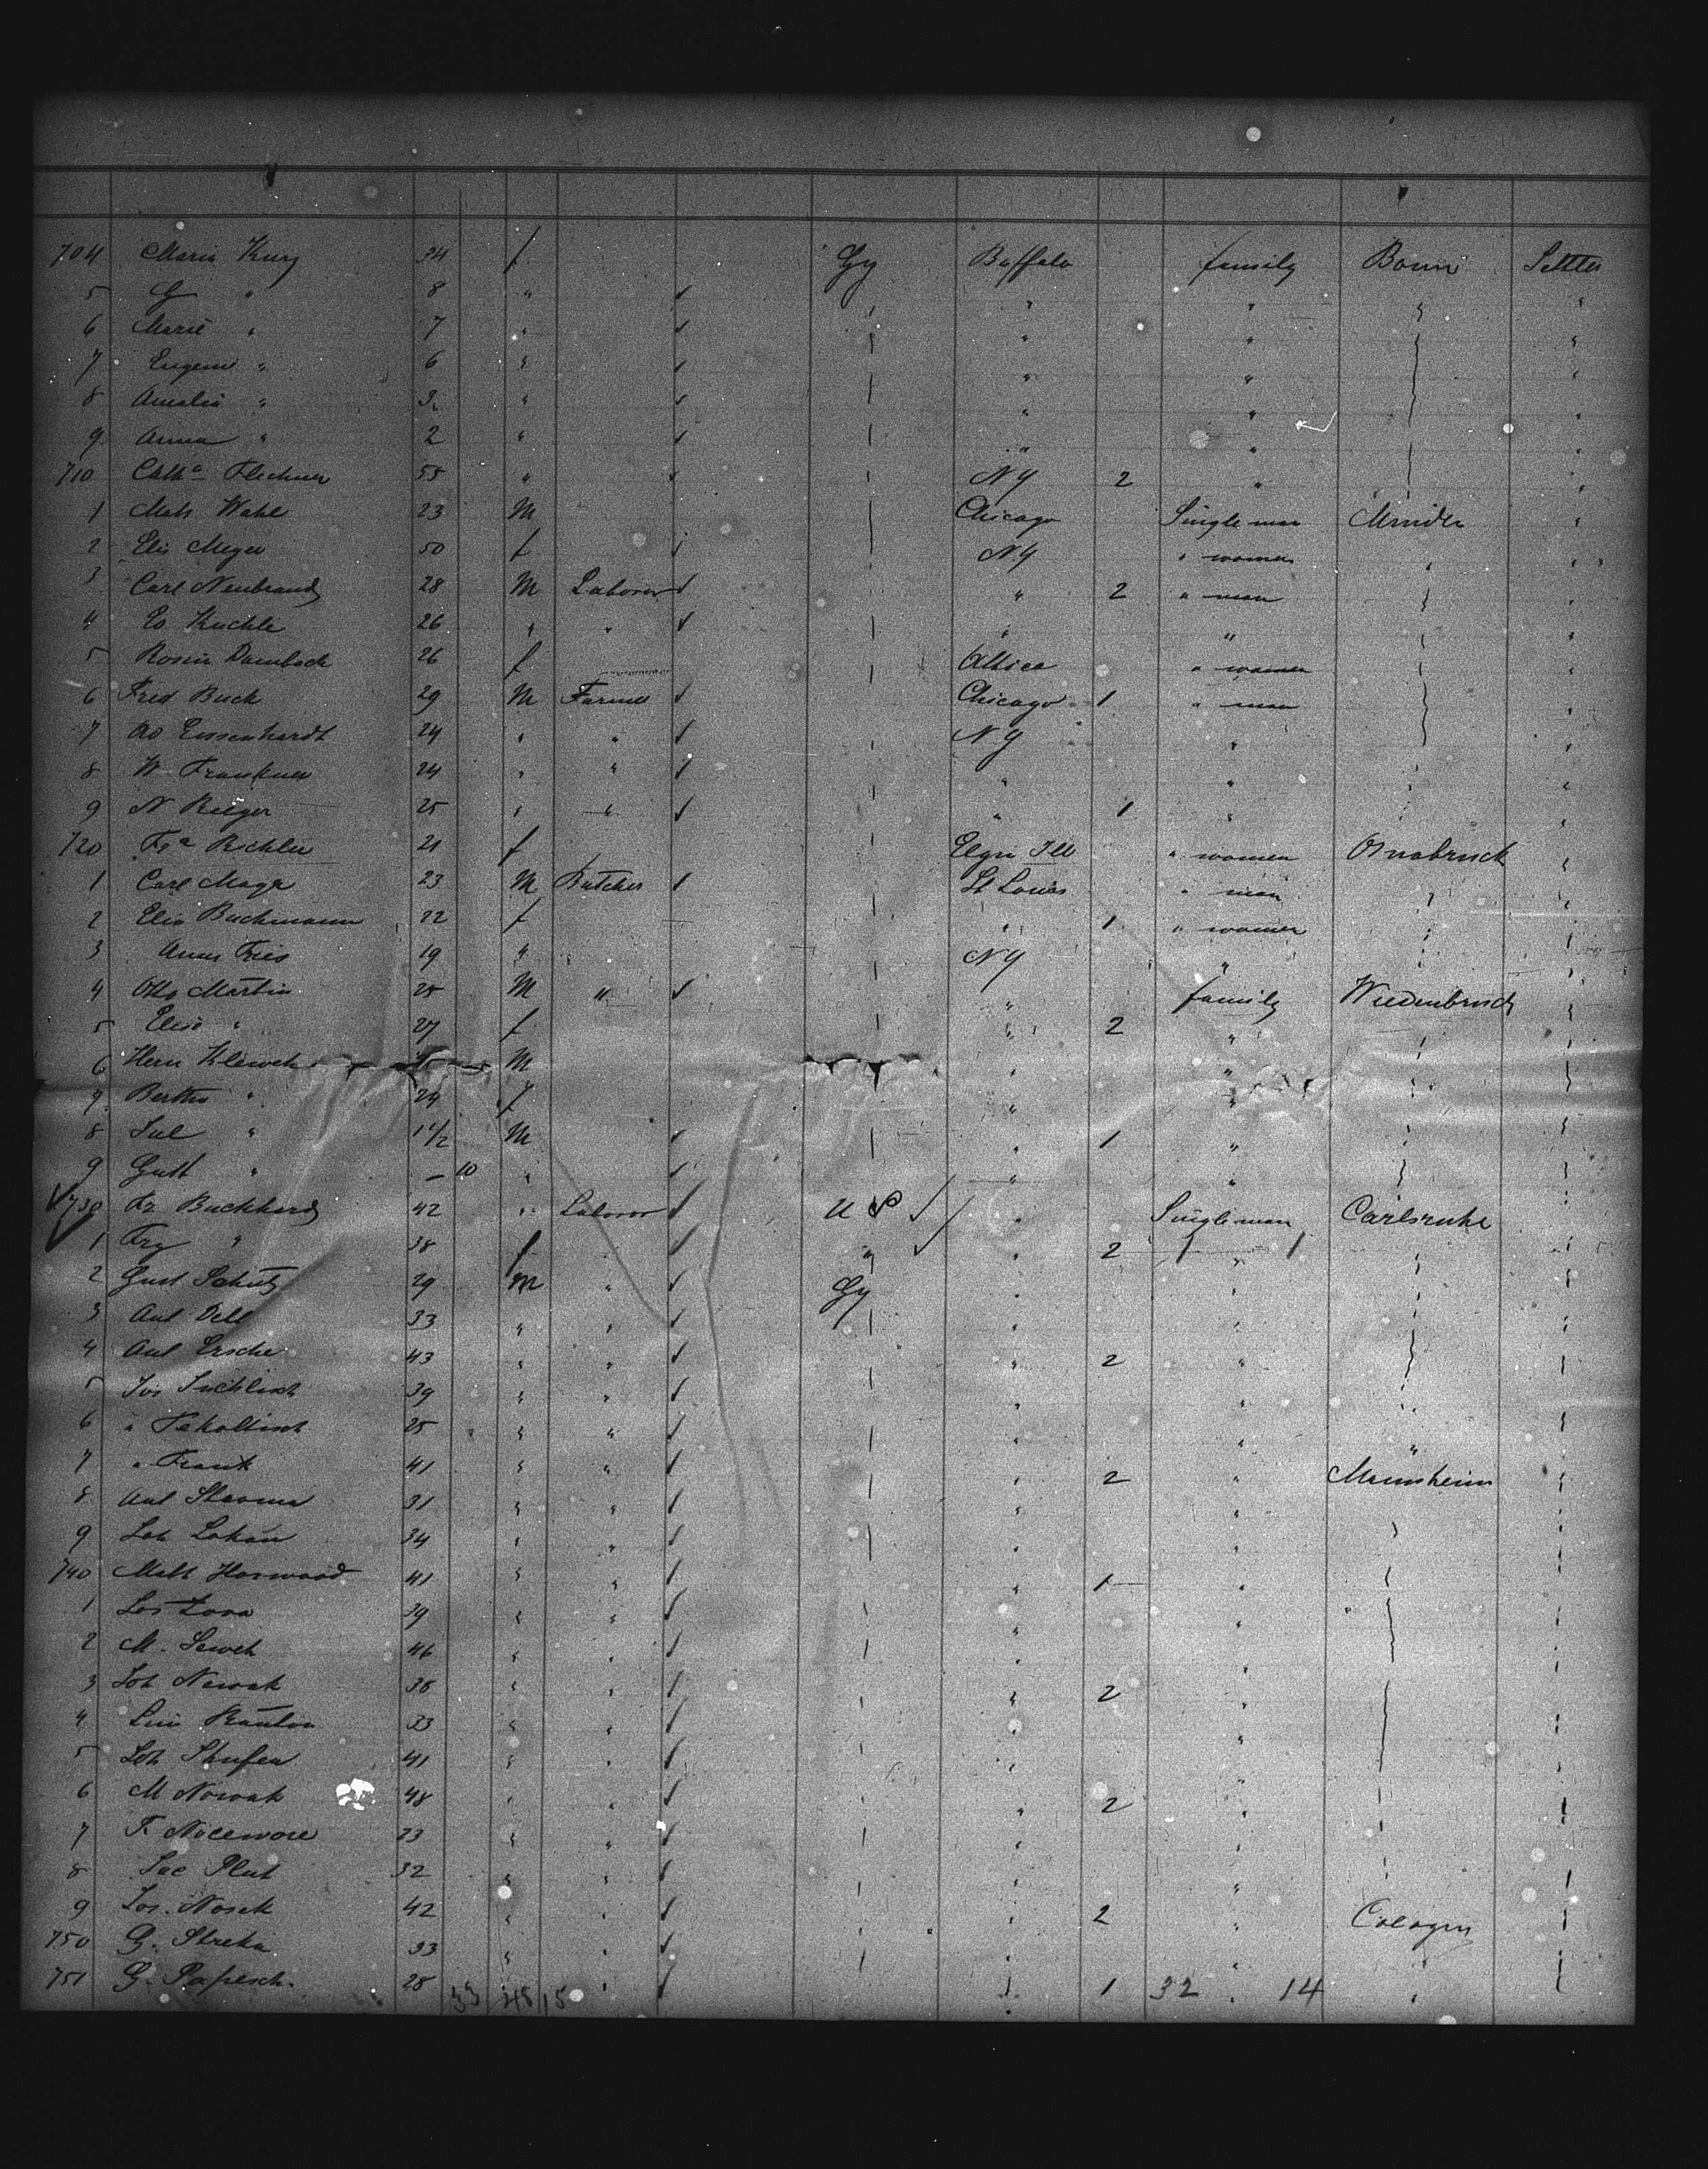 704 Maria Kurz 34 f Gy Buffalo family Bonn Settler
5 G " 8 " " " "
6 Marie " 7 " " " "
7 Eugenie " 6 " " " "
8 Amalia " 3 " " " "
9 Anna " 2 " " " "
710 Cath a Flechner 55 " NY 2 " "
1 Math Wahl 23 M Chicago Single man Minden "
2 Elis Meyer 50 f NY " women " "
3 Carl Neubrand 28 M Laborer " 2 " man "
4 Eo Kuchle 26 " " " " "
5 Rosine Dambach 26 f Attica " women "
6 Fred Buck 29 M Farmer Chicago 1 " man "
7 Ro Eissenhardt 24 " " NY " "
8 W Frankner 24 " " " " "
9 N Rieger 25 " " " 1 " "
720 Fr a Richler 21 f Elgin Ill " women Osnabruck "
1 Carl Mayr 23 M Butcher St Louis " man " "
2 Elis Buchmann 22 f " 1 " women " "
3 Anna Fries 19 " NY " " "
4 Otto Martin 25 M " " family Wiedenbruck "
5 Elise " 27 f " 2 " " "
6 Herm Klewek M " " "
7 Bertha " 24 f " " "
8 Jul " 1 1/2 M " 1 " " "
9 Gust " — 10 " " " "
730 Fr Buckhard 42 " Laborer U S " Single man Carlsruhe
1 Frz " 38 f " " " 2 " " "
2 Gust Schutz 29 M " Gy " " " "
3 Ant Dell 33 " " " " " "
4 Ant Ersche 43 " " " 2 " "
5 Jos Suchlisch 39 " " " " " "
6 " Tekoltisch 25 " " " " " "
7 " Frank 41 " " " 2 " Mannheim "
8 Ant Straoma 31 " " " " "
9 Joh Lokan 34 " " " " "
740 Math Harwood 41 " " " 1 " "
1 Jos Zova 39 " " " " "
2 M. Sewek 46 " " " " "
3 Joh Nawak 38 " " " 2 " "
4 33 " " " " "
5 Joh Stufen 41 " " " " "
6 M Nowak 48 " " " 2 " "
7 F. 23 " " " " "
8 Jac Plut 32 " " " " "
9 Jos. Nosek 42 " " " 2 " Cologne
750 G. Streka 33 " " " " "
751 G. Papesch. 28 33 48 15 " 1 32 14 "